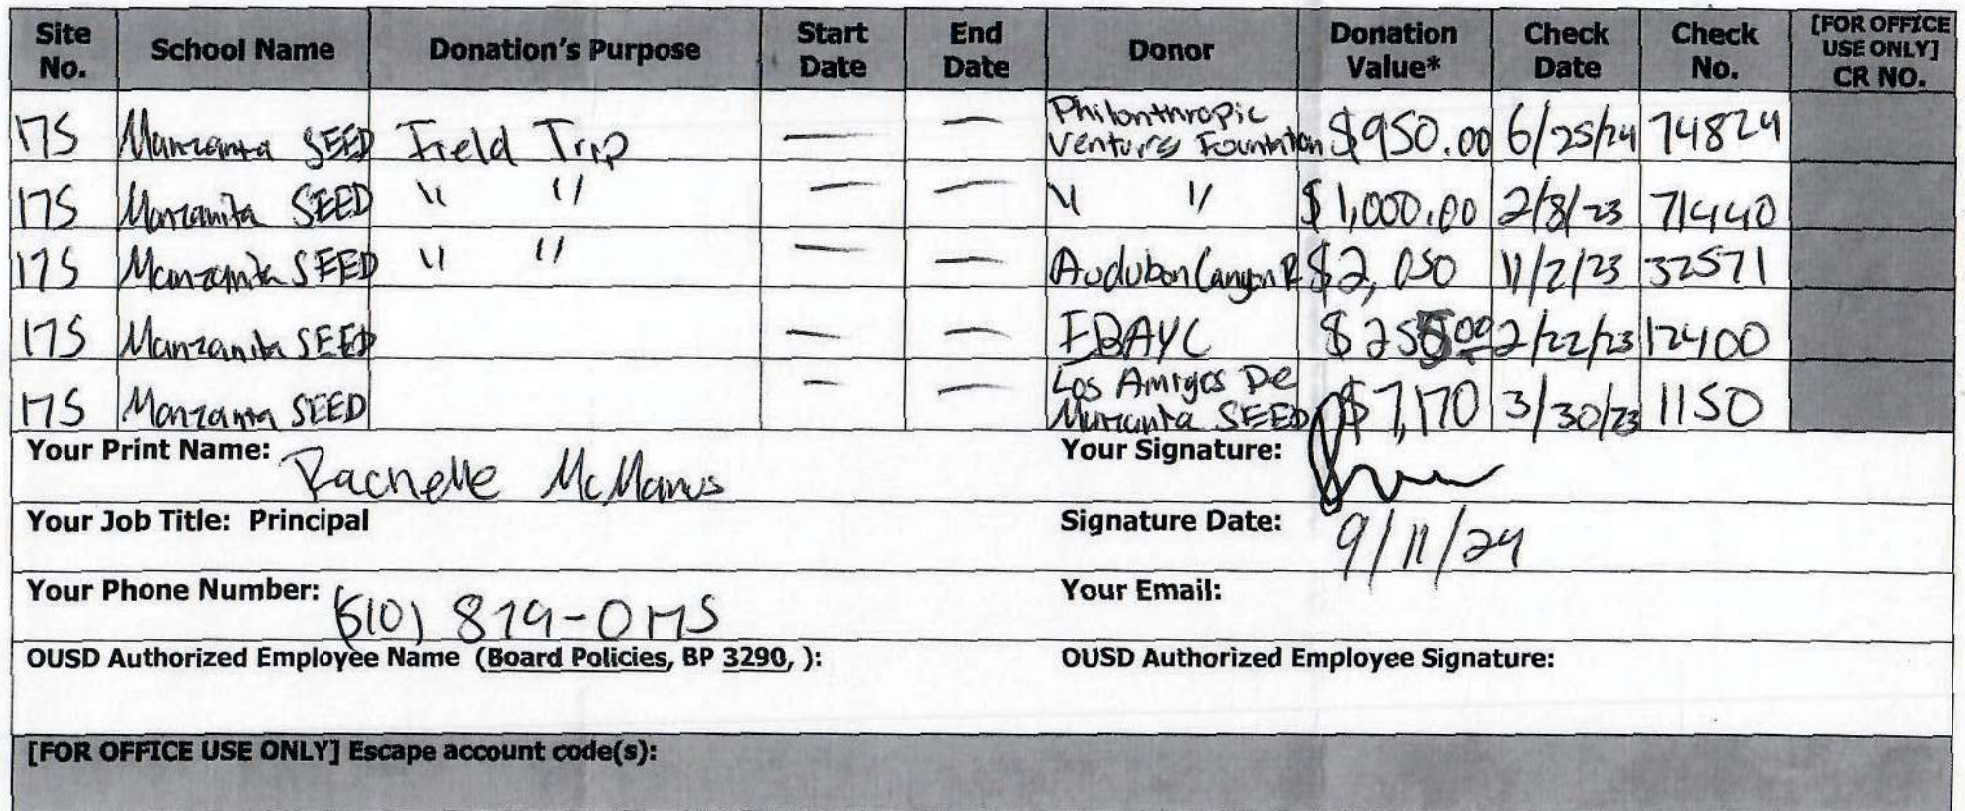 Site No. School Name Donation's Purpose Start Date End Date Donor Donation Value* Check Date Check No. [FOR OFFICE USE ONLY] CR NO.
175 Manzanita SEED Field Trip — — Philanthropic Ventures Foundation $950.00 6/25/24 74824
175 Manzanita SEED " " — — " " $1,000.00 2/8/23 71440
175 Manzanita SEED " " — — Audubon Canyon R $2,050 11/2/23 32571
175 Manzanita SEED — — EBAYC $255.00 2/22/23 12400
175 Manzanita SEED — — Los Amigos De Manzanita SEED $7,170 3/30/23 1150
Your Print Name: Rachelle McManus Your Signature:
Your Job Title: Principal Signature Date: 9/11/24
Your Phone Number: (510) Your Email:
OUSD Authorized Employee Name (Board Policies, BP 3290, ): OUSD Authorized Employee Signature:
[FOR OFFICE USE ONLY] Escape account code(s):